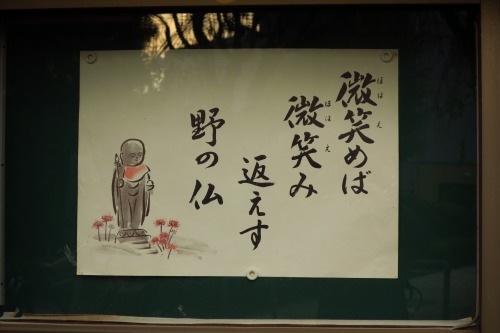 微笑めば
微笑み
返えす
野の仏
ほほえ
ほほえ